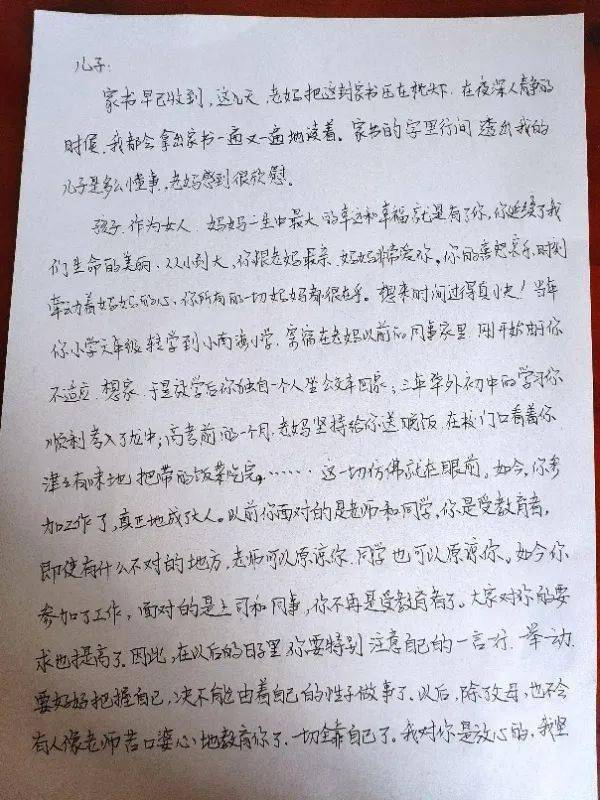 儿子:
家书早已收到,这几天,老妈把这封家书压在枕头下.在夜深人静的
时候,我都会拿出家书一遍又一遍地读着。家书的字里行间透出我的
儿子是多么懂事,老妈感到很欣慰。
孩子.作为女人.妈妈一生中最大的幸运和幸福就是有了你,你延续了我
们生命的美丽.从小到大,你跟老妈最亲.妈妈非常爱你。你的喜怒哀乐.时刻
牵动着妈妈的心、你所有的一切妈妈都很在乎。想来时间过得真快!当年
你小学六年级转学到小南海小学.寄宿在老妈以前的同事家里.刚开始由于你
不适应.想家.于是放学后你独自一个人坐公交车回家;三年学外初中的学习你
顺利考入了龙中;高考前的一个月.老妈坚持给你送晚饭.在校门口看着你
津津有味地把带的饭菜吃完。……这一切仿佛就在眼前。如今,你参
加工作了,真正地成了大人。以前你面对的是老师和同学,你是受教育者,
即使有什么不对的地方,老师可以原谅你.同学也可以原谅你。如今你
参加了工作,面对的是上司和同事,你不再是受教育者了。大家对你的要
求也提高了。因此,在以后的日子里你要特别注意自己的一言一行.举一动.
要好好把握自己,决不能由着自己的性子做事了。以后,除了父母,也不会
有人像老师苦口婆心地教育你了.一切全靠自己了。我对你是放心的,我坚